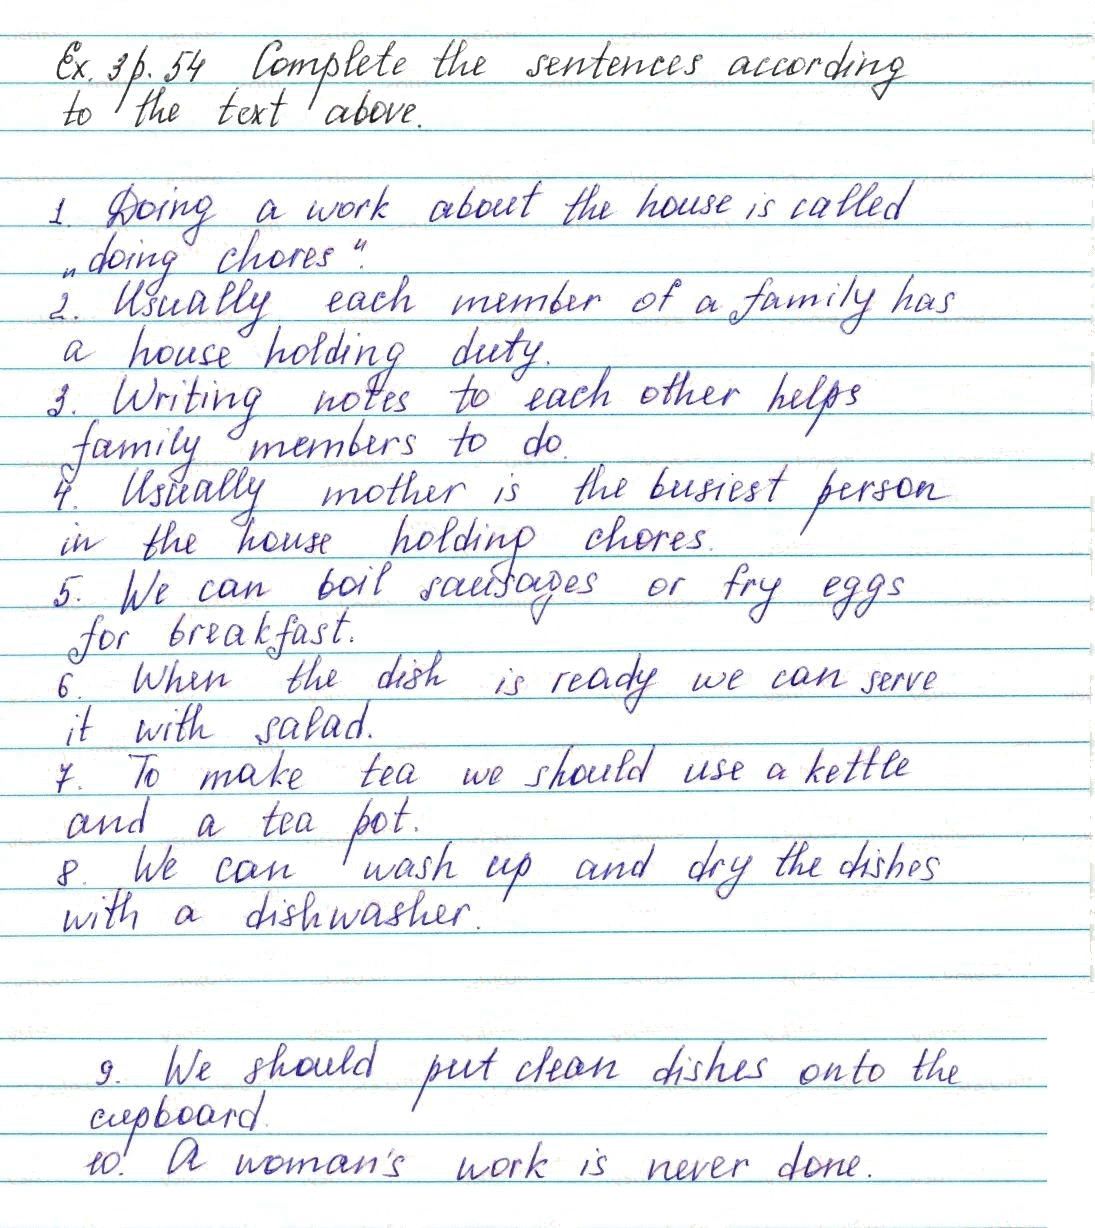 Ex. 3 p. 54 Complete the sentences according
to the text above.
1. Doing a work about the house is called
„doing chores“.
2. Usually each member of a family has
a house holding duty.
3. Writing notes to each other helps
family members to do.
4. Usually mother is the busiest person
in the house holding chores.
5. We can boil sausages or fry eggs
for breakfast.
6. When the dish is ready we can serve
it with salad.
7. To make tea we should use a kettle
and a tea pot.
8. We can wash up and dry the dishes
with a dishwasher.
9. We should put clean dishes onto the
cupboard.
10. A woman's work is never done.